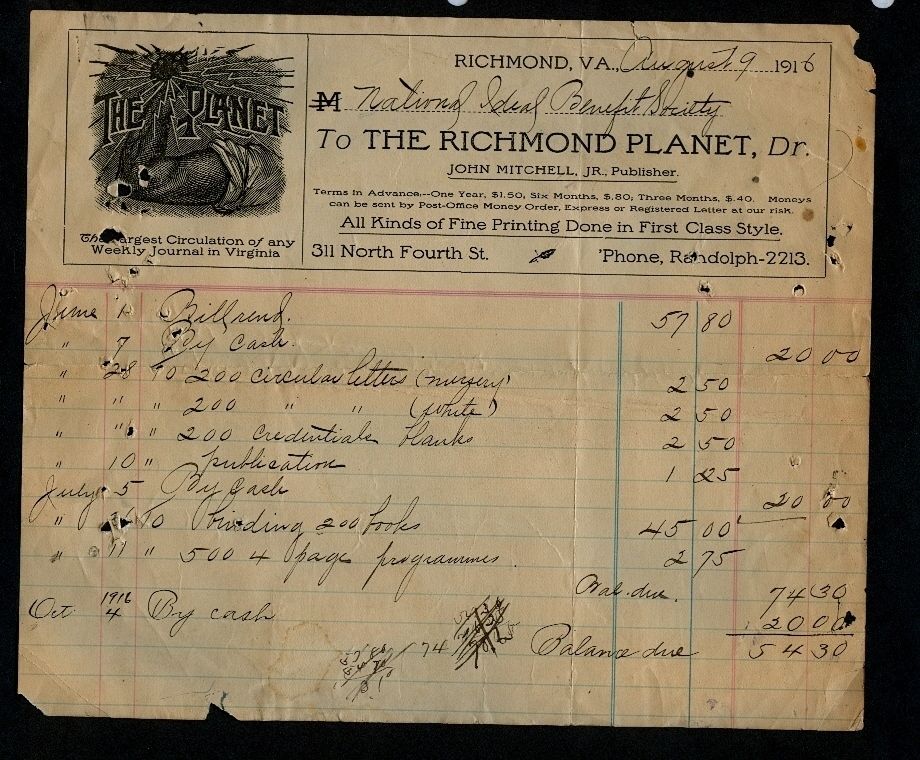 THE PLANET
The Largest Circulation of any
Weekly Journal in Virginia
RICHMOND, VA., August 9 1916
M National Ideal Benefit Society
To THE RICHMOND PLANET, Dr.
JOHN MITCHELL, JR., Publisher.
Terms in Advance.--One Year, $1.50, Six Months, $.80; Three Months, $.40. Moneys
can be sent by Post-Office Money Order, Express or Registered Letter at our risk.
All Kinds of Fine Printing Done in First Class Style.
311 North Fourth St. 'Phone, Randolph-2213.
June 1 Bill rend. 57 80
" 7 By cash. 20 00
" 28 To 200 circular letters 2 50
" " " 200 " " (white) 2 50
" " " 200 credentials blanks 2 50
" 10 " publication 1 25
July 5 By cash 20 00
" To binding 200 books 45 00
" 11 " 500 4 page programmes 2 75
Bal. due. 74 30
Oct 1916 4 By cash 20 00
74 Balance due 54 30